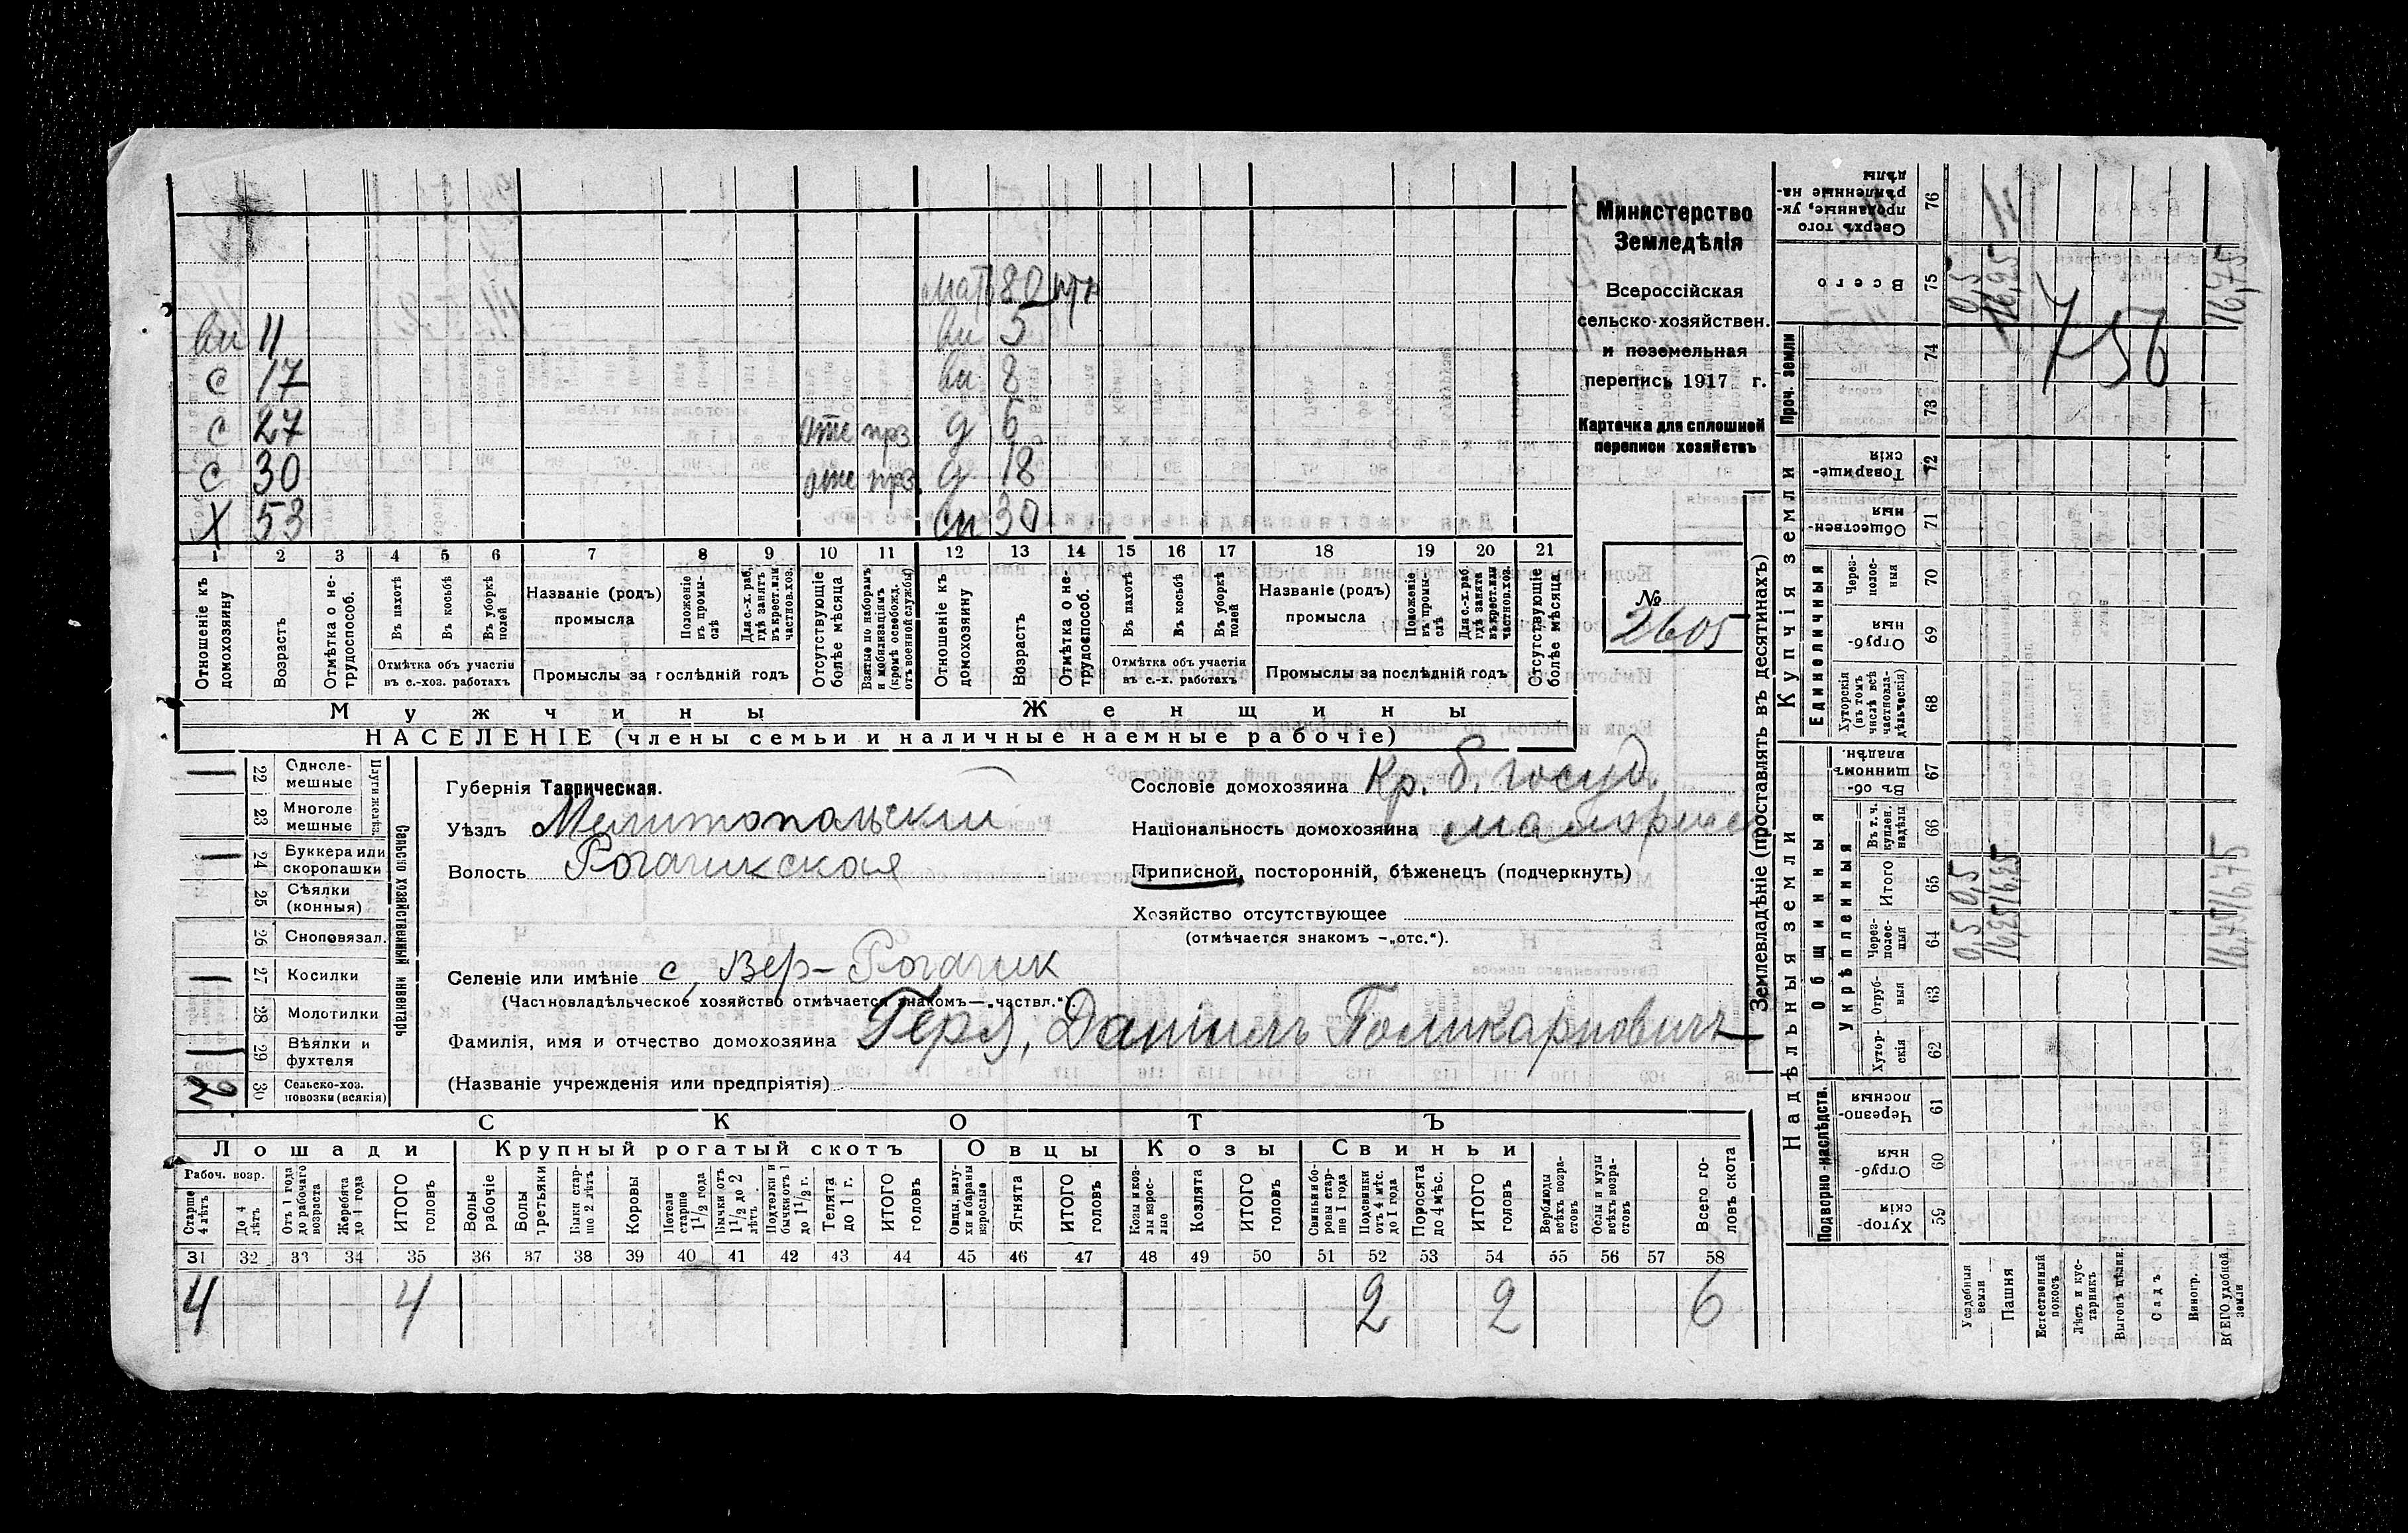 мать 80 н/т
вн 11 вн 5
с 17 вн 8
с 27 отс прз д 6
с 30 отс прз д 18
Х 53 сн 30
1 2 3 4 5 6 7 8 9 10 11 12 13 14 15 16 17 18 19 20 21
Отношеніе къ домохозяину
Возрастъ
Отмѣтка о не-трудоспособ.
Въ пахотѣ
Въ косьбѣ
Въ уборкѣ полей
Отмѣтка объ участіи въ с.-хоз. работахъ
Названіе (родъ) промысла
Положеніе въ промы-слѣ
Для с.-х. раб. гдѣ занятъ въ крест. или частнов. хоз.
Промыслы за послѣдній годъ
Отсутствующіе болѣе мѣсяца
Взятые по наборамъ и мобилизаціямъ (кромѣ освобожд. отъ военной службы)
Отношеніе къ домохозяину
Возрастъ
Отмѣтка о не-трудоспособ.
Въ пахотѣ
Въ косьбѣ
Въ уборкѣ полей
Отмѣтка объ участіи въ с.-х. работахъ
Названіе (родъ) промысла
Положеніе въ промы-слѣ
Для с.-х. раб. гдѣ занята въ крест. или частнов. хоз.
Промыслы за послѣдній годъ
Отсутствующіе болѣе мѣсяца
Мужчины Женщины
НАСЕЛЕНІЕ (члены семьи и наличные наемные рабочіе)
Министерство
Земледѣлія
Всероссійская
сельско-хозяйствен.
и поземельная
перепись 1917 г.
Карточка для сплошной
переписи хозяйствъ
№
2605
22 Одноле-мешные
23 Многоле мешные
Плуги желѣз.
24 Буккера или скоропашки
25 Сѣялки (конныя)
26 Сноповязал.
27 Косилки
28 Молотилки
29 Вѣялки и фухтеля
30 Сельско-хоз. повозки (всякія)
2
Сельско хозяйственный инвентарь
Губернія Таврическая.
Уѣздъ Мелитопольскій
Волость Рогачикская
Селеніе или имѣніе с. Вер-Рогачик
(Частновладѣльческое хозяйство отмѣчается знакомъ—„частвл.“).
Фамилія, имя и отчество домохозяина Геря, Даниилъ Поликарповичъ
(Названіе учрежденія или предпріятія)
Сословіе домохозяина Кр. б. госуд.
Національность домохозяина малорос
Приписной, посторонній, бѣженецъ (подчеркнуть)
Хозяйство отсутствующее
(отмѣчается знакомъ —„отс.“).
СКОТЪ
Лошади Крупный рогатый скотъ Овцы Козы Свиньи
Рабоч. возр.
Старше 4 лѣтъ
До 4 лѣтъ
Отъ 1 года до рабочаго возраста
Жеребята до 1 года
ИТОГО головъ
Волы рабочіе
Волы третьяки
Быки стар-ше 2 лѣтъ
Коровы
Нетели старше 1 1/2 года
Бычки отъ 1 1/2 до 2 лѣтъ
Подтелки и бычки отъ 1 до 1 1/2 г.
Телята до 1 г.
ИТОГО головъ
Овцы, валу-хи и бараны взрослые
Ягнята
ИТОГО головъ
Козы и коз-лы взрос-лые
Козлята
ИТОГО головъ
Свиньи и бо-ровы стар-ше 1 года
Подсвинки отъ 4 мѣс. до 1 года
Поросята до 4 мѣс.
ИТОГО головъ
Верблюды всѣхъ возра-стовъ
Ослы и мулы всѣхъ возра-стовъ
Всего го-ловъ скота
31 32 33 34 35 36 37 38 39 40 41 42 43 44 45 46 47 48 49 50 51 52 53 54 55 56 57 58
4 4 2 2 6
Землевладѣніе (проставлять въ десятинахъ)
Надѣльныя земли Купчія земли Проч. земли
Подворно-наслѣдств.
Общинныя
Укрѣпленныя
Единоличныя
Сверхъ того проданные, ук-рѣпленные на-дѣлы 76
Всего 75 0,5 16,25 16,75
756
74
73
Товарище-скія 72
Обществен-ныя 71
Через-полос-ныя 70
Отруб-ныя 69
Хуторскія (въ томъ числѣ всѣ частновла-дѣльческія) 68
Въ об-щинномъ владѣн. 67
Въ т. ч. куплен. надѣлы 66
Итого 65 0,5 16,25 16,75
Через-полос-ныя 64 0,5 16,25 16,75
Отруб-ныя 63
Хутор-скія 62
Черезпо-лосныя 61
Отруб-ныя 60
Хутор-скія 59
Усадебныя земли
Пашня
Естественный покосъ
Лѣсъ и кус-тарникъ
Выгонъ цѣлин.
Садъ
Виногр.
ВСЕГО удобной земли